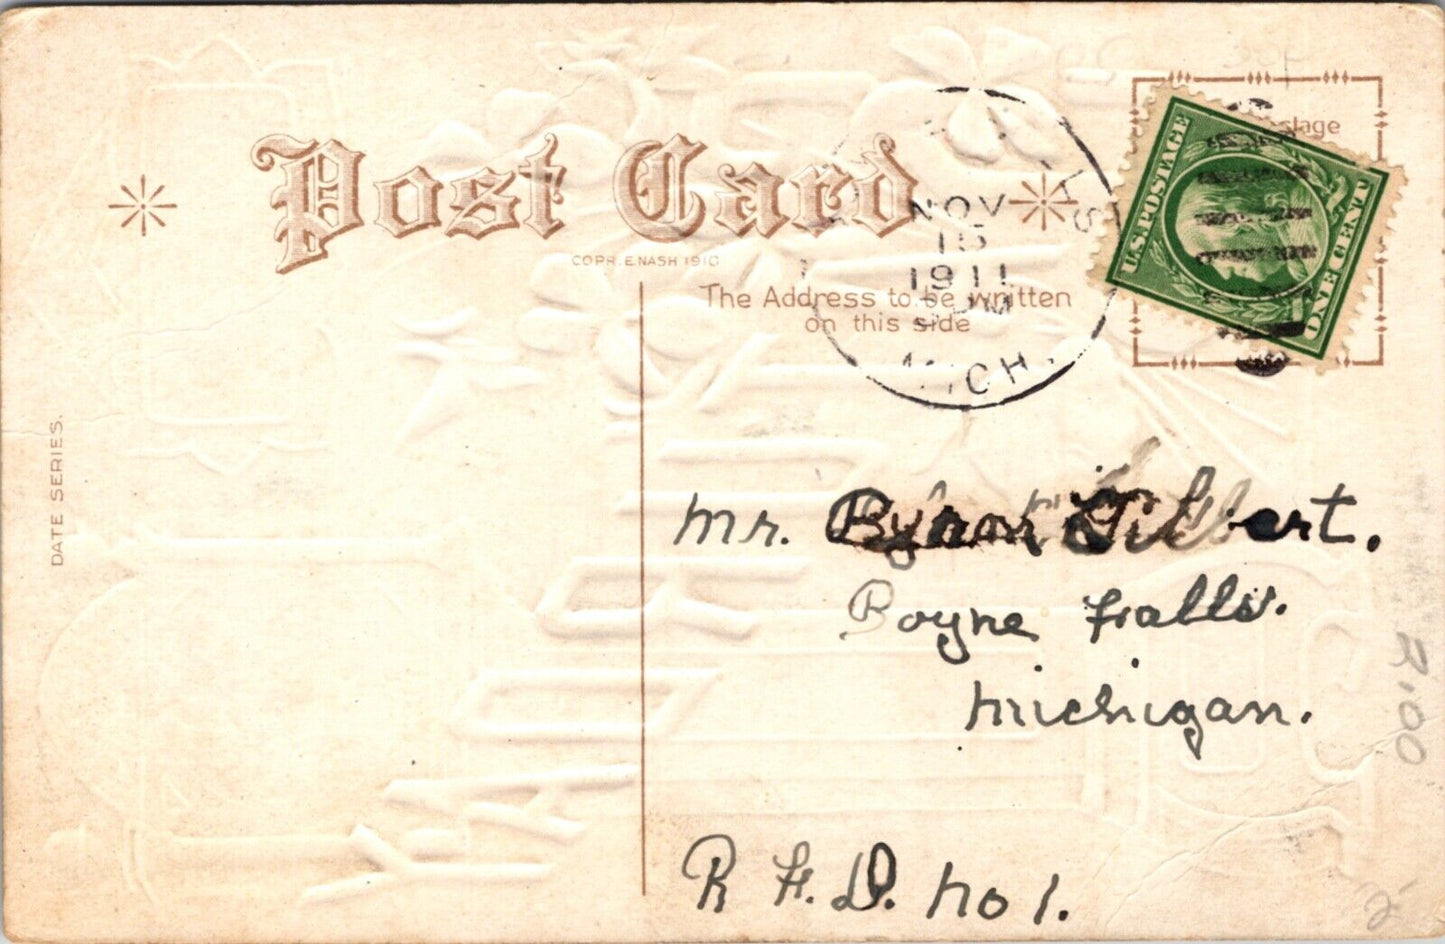 Post Card
COPR. E. NASH 1910
The Address to be written
on this side
DATE SERIES.
NOV
15
1911
PM
MICH.
U.S. POSTAGE
ONE CENT
Mr. Byron Gilbert.
Boyne Falls.
Michigan.
R. F. D. No 1.
2.00